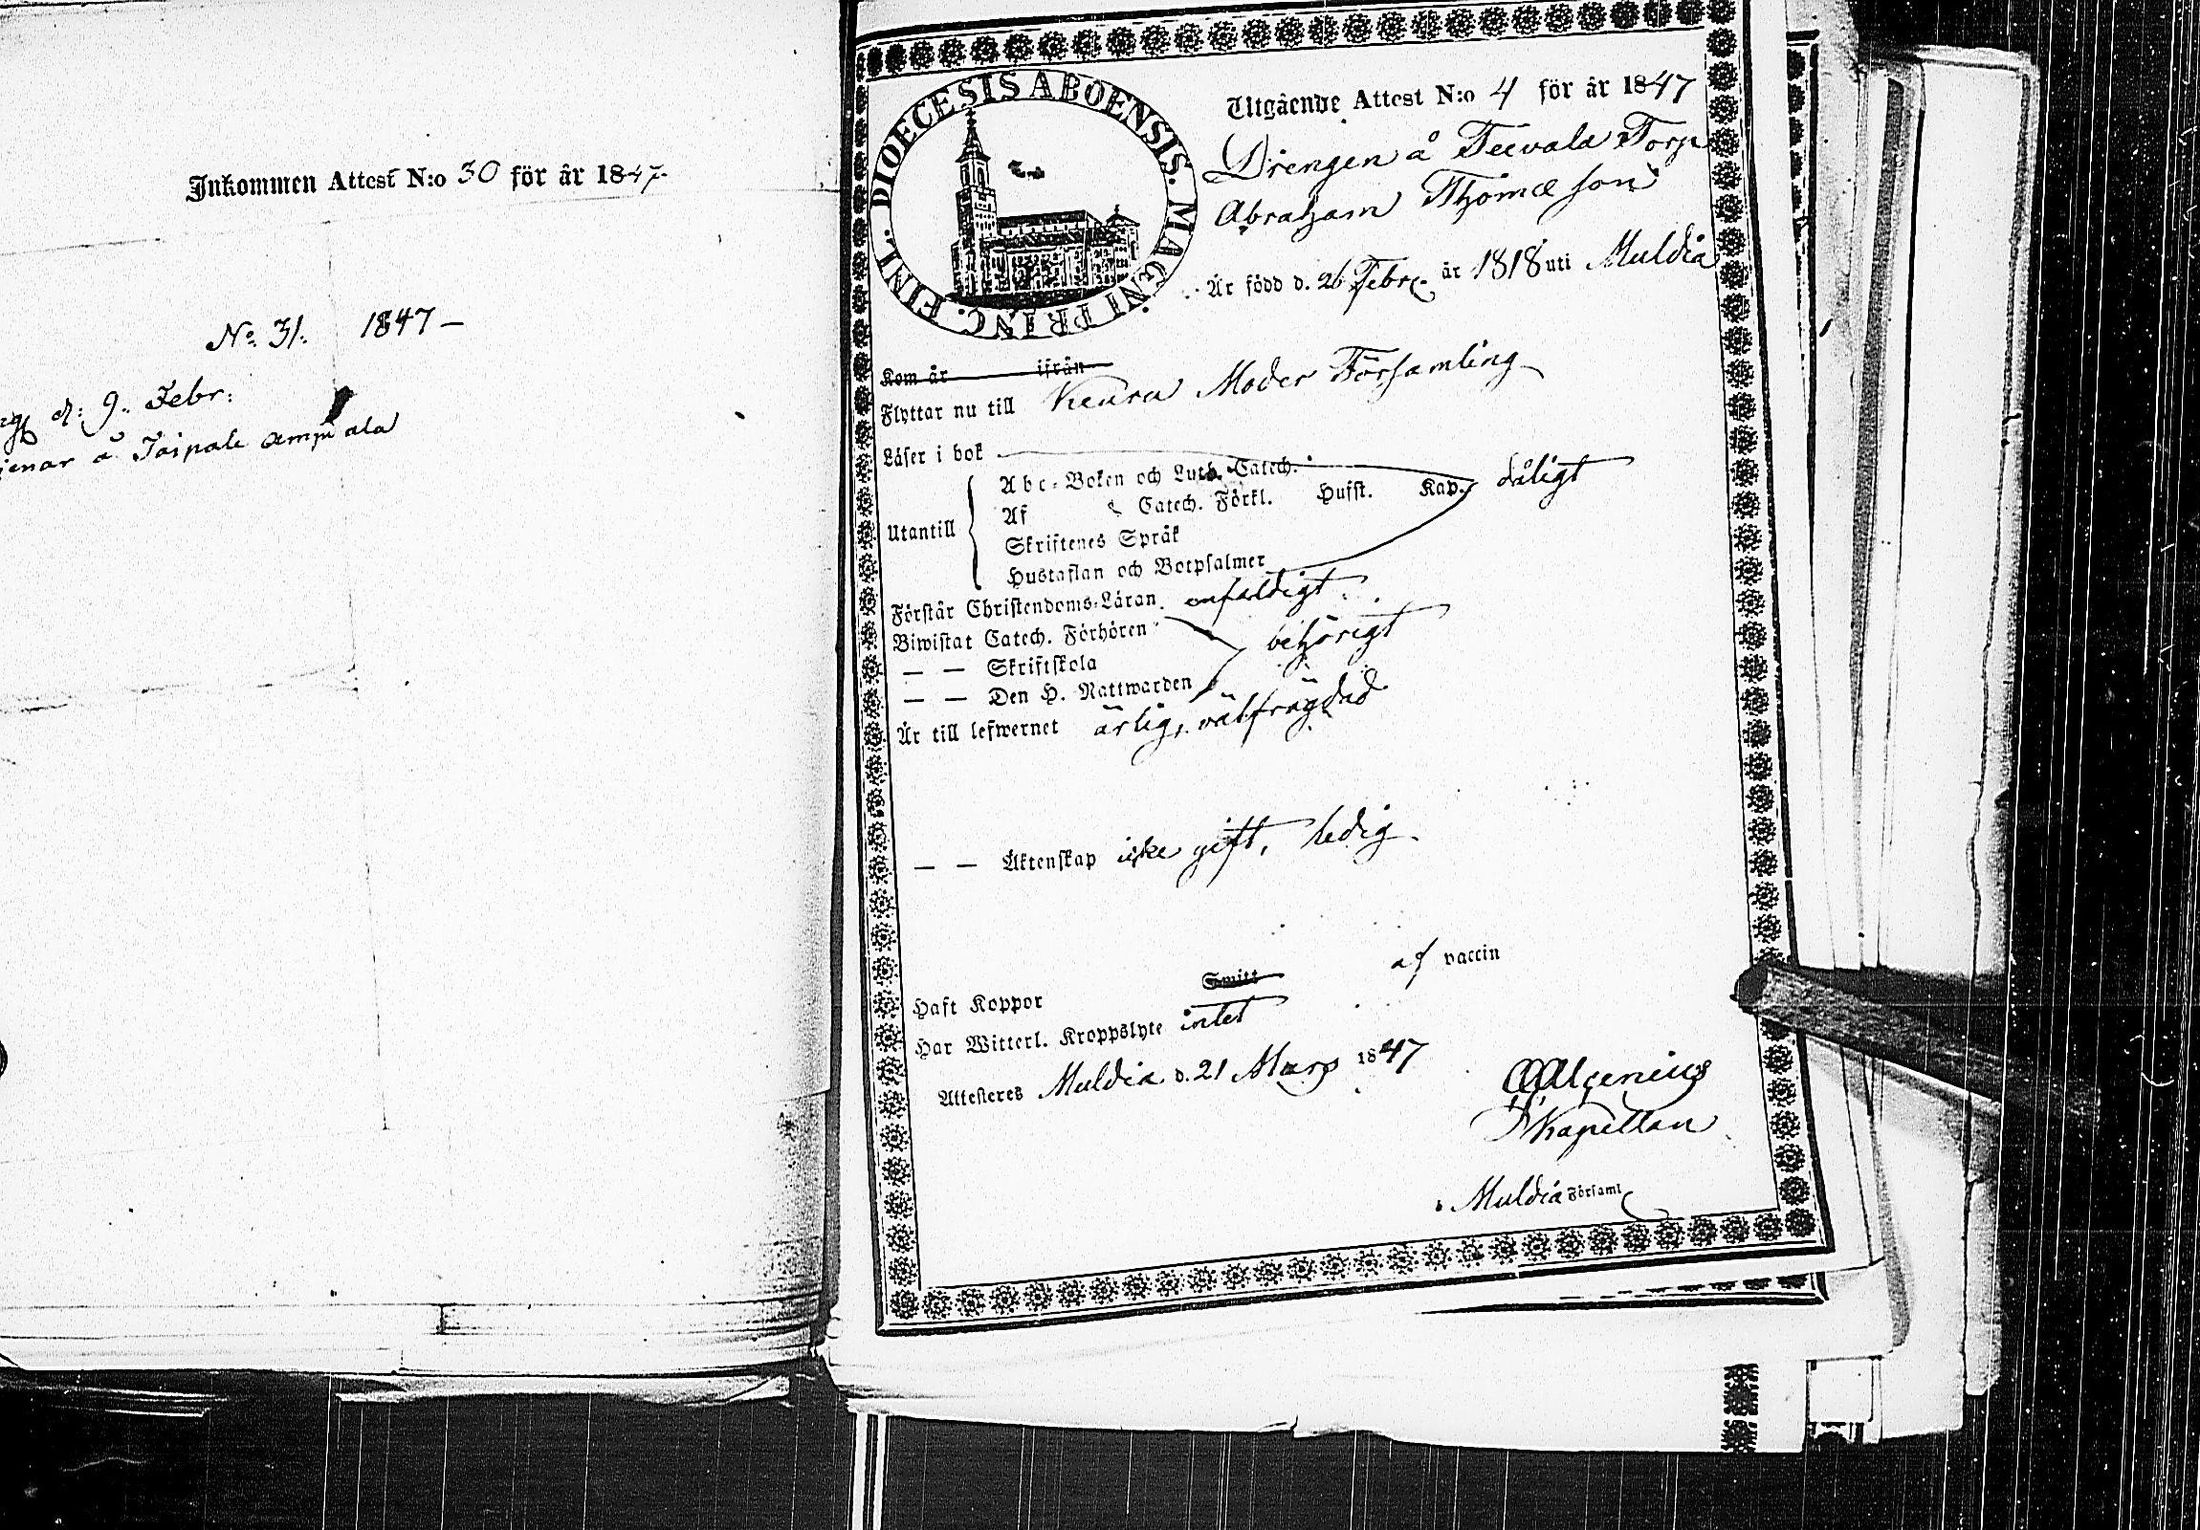 Inkommen Attest N:o 30 för år 1847.
No. 31. 1847 –
d: 9. Febr:
å Taipale
DIOECESIS ABOENSIS. MAGNI PRINC. FINL.
Utgående Attest N:o 4 för år 1847
Drengen å Teevala Torp
Abraham Thomæson
Är född d. 26 Febr. år 1818 uti Muldia
Kom år ifrån
Flyttar nu till Keuru Moder Församling
Läser i bok
Abc-Boken och Luth. Catech.
Utantill Af Catech. Förkl. Husst. Kap. dåligt
Skriftenes Språk
Hustaflan och Botpsalmer
Förstår Christendoms-Läran enfaldigt
Biwistat Catech. Förhören behörigt
— — Skriftskola
— — Den H. Nattwarden
Är till lefwernet ärlig, välfrägdad
— — Äktenskap icke gift, ledig.
Haft Koppor Smitt af vaccin
Har Witterl. Kroppslyte intet
Attesteres Muldia d. 21 Mars 1847
Algenius
Kapellan
Muldia Församl